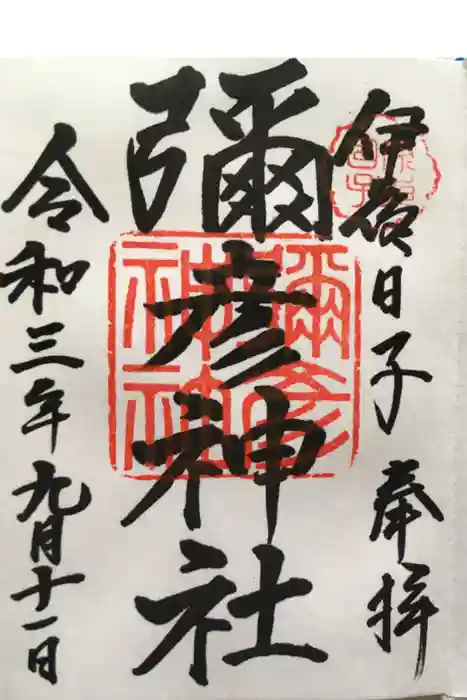 伊夜日子 奉拝
彌彦神社
令和三年九月十一日
彌彦神社